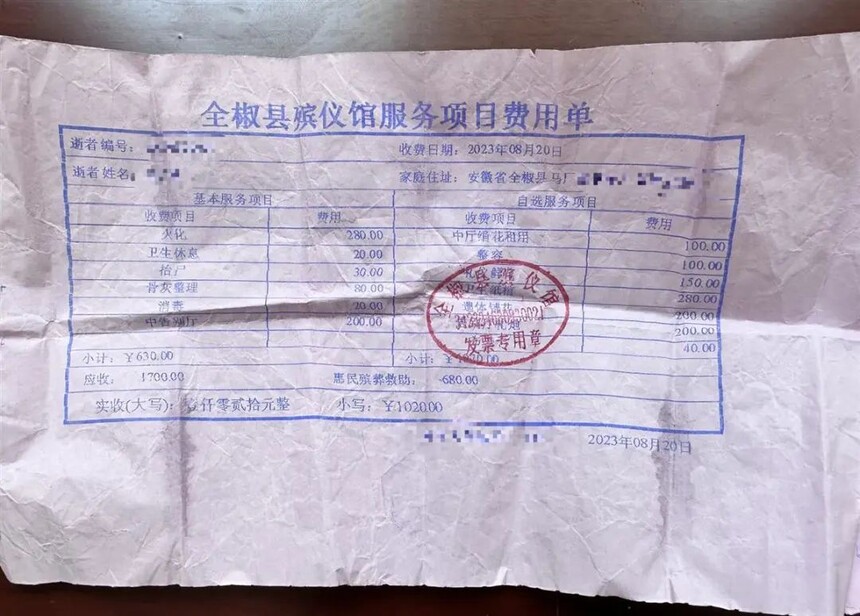 全椒县殡仪馆服务项目费用单
逝者编号:
收费日期: 2023年08月20日
逝者姓名
家庭住址: 安徽省全椒县马厂
基本服务项目 自选服务项目
收费项目 费用 收费项目 费用
火化 280.00 中厅绢花租用 100.00
卫生休息 20.00 整容 100.00
抬尸 30.00 150.00
骨灰整理 80.00 280.00
消毒 20.00 遗体铺花 200.00
中告别厅 200.00 200.00
40.00
小计: ¥630.00 小计:
应收: 1700.00 惠民殡葬救助: -680.00
实收(大写): 壹仟零贰拾元整 小写: ¥1020.00
2023年08月20日
全椒县殡仪馆
发票专用章